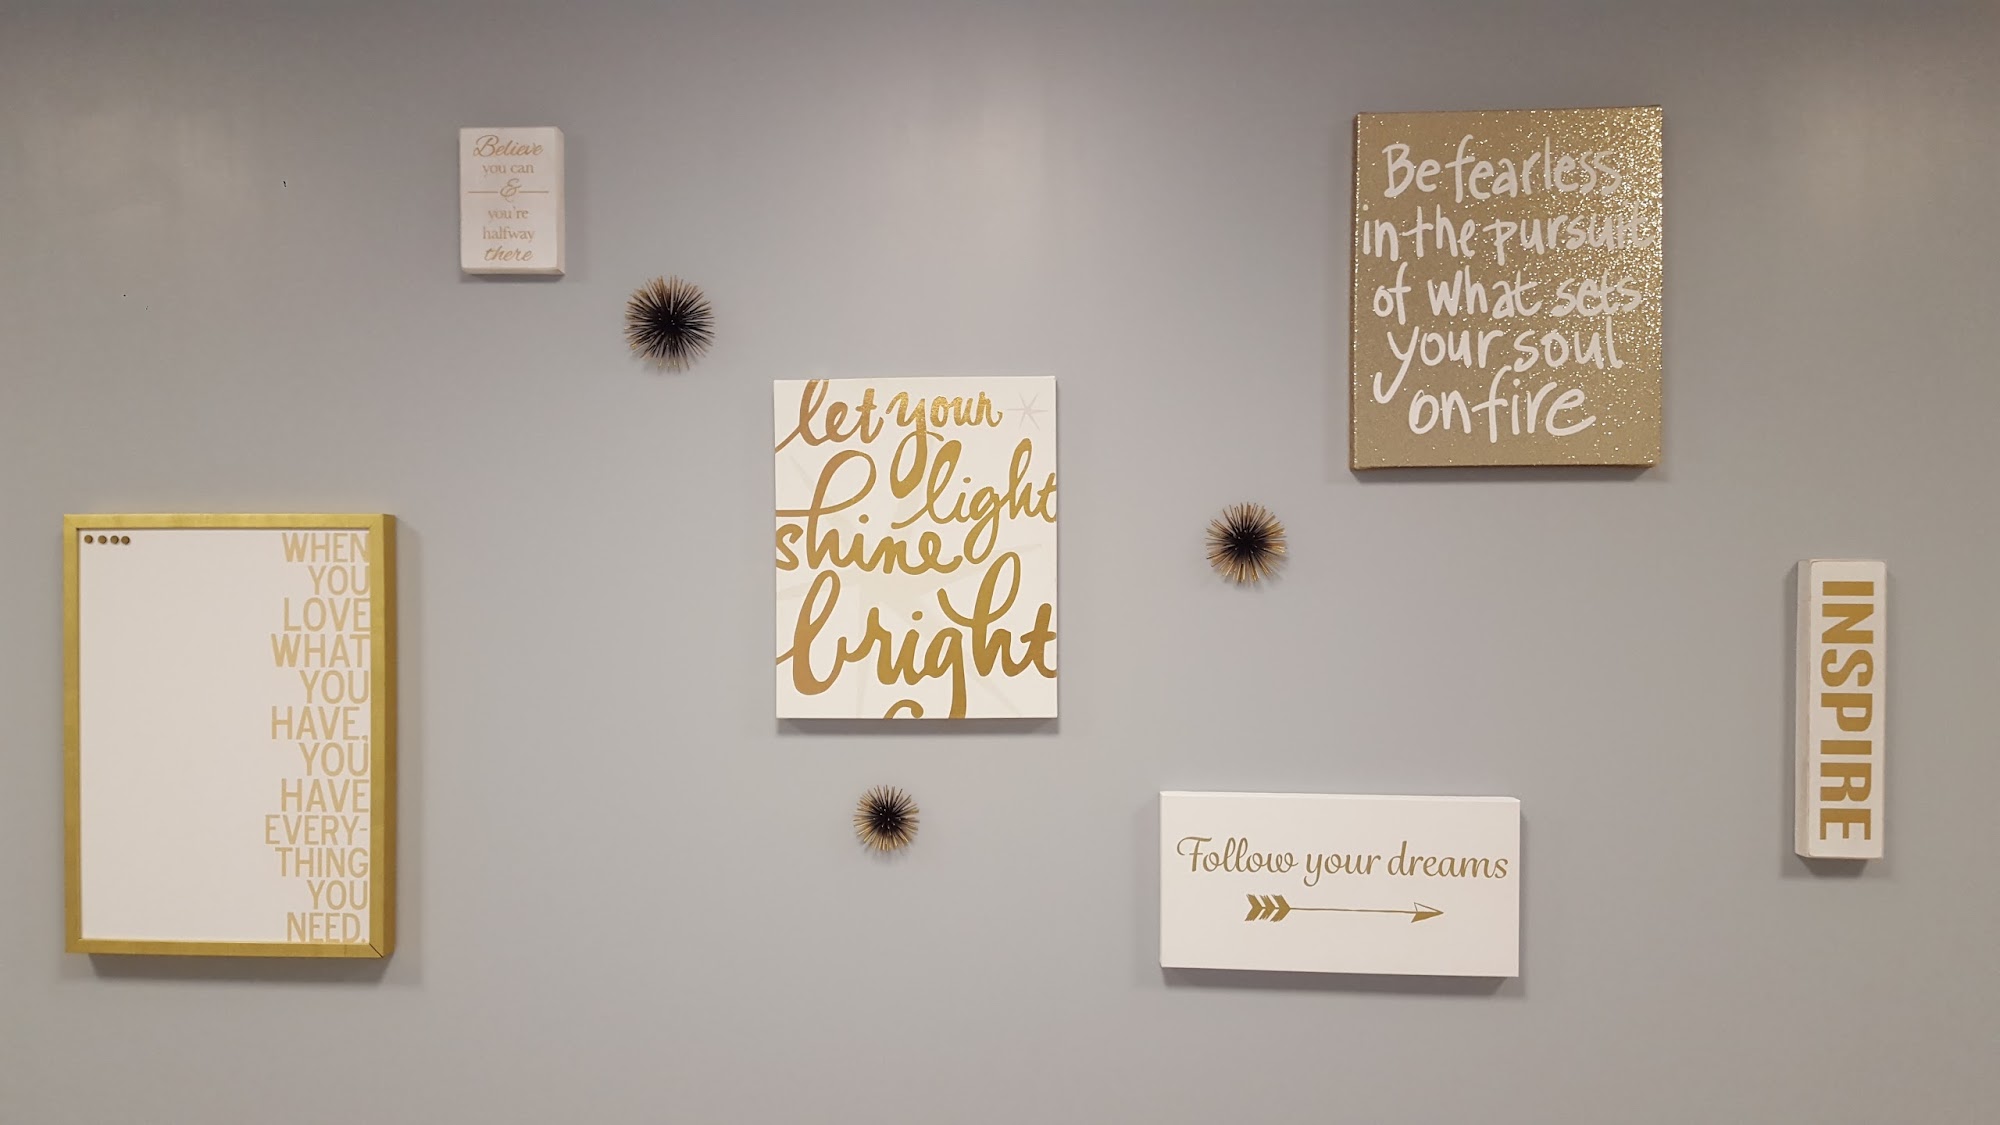 Believe
you can
&
you're
halfway
there
Be fearless
in the pursuit
of what sets
your soul
on fire
let your
light
shine
bright
WHEN
YOU
LOVE
WHAT
YOU
HAVE,
YOU
HAVE
EVERY-
THING
YOU
NEED.
INSPIRE
Follow your dreams